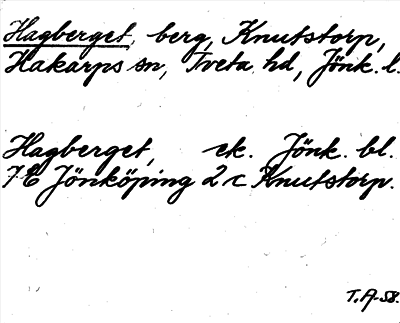 Hagberget, berg, Knutstorp,
Hakarps sn, Tveta hd, Jönk. l.
Hagberget, ek. Jönk. bl.
7E Jönköping 2 c Knutstorp.
T.A-58.